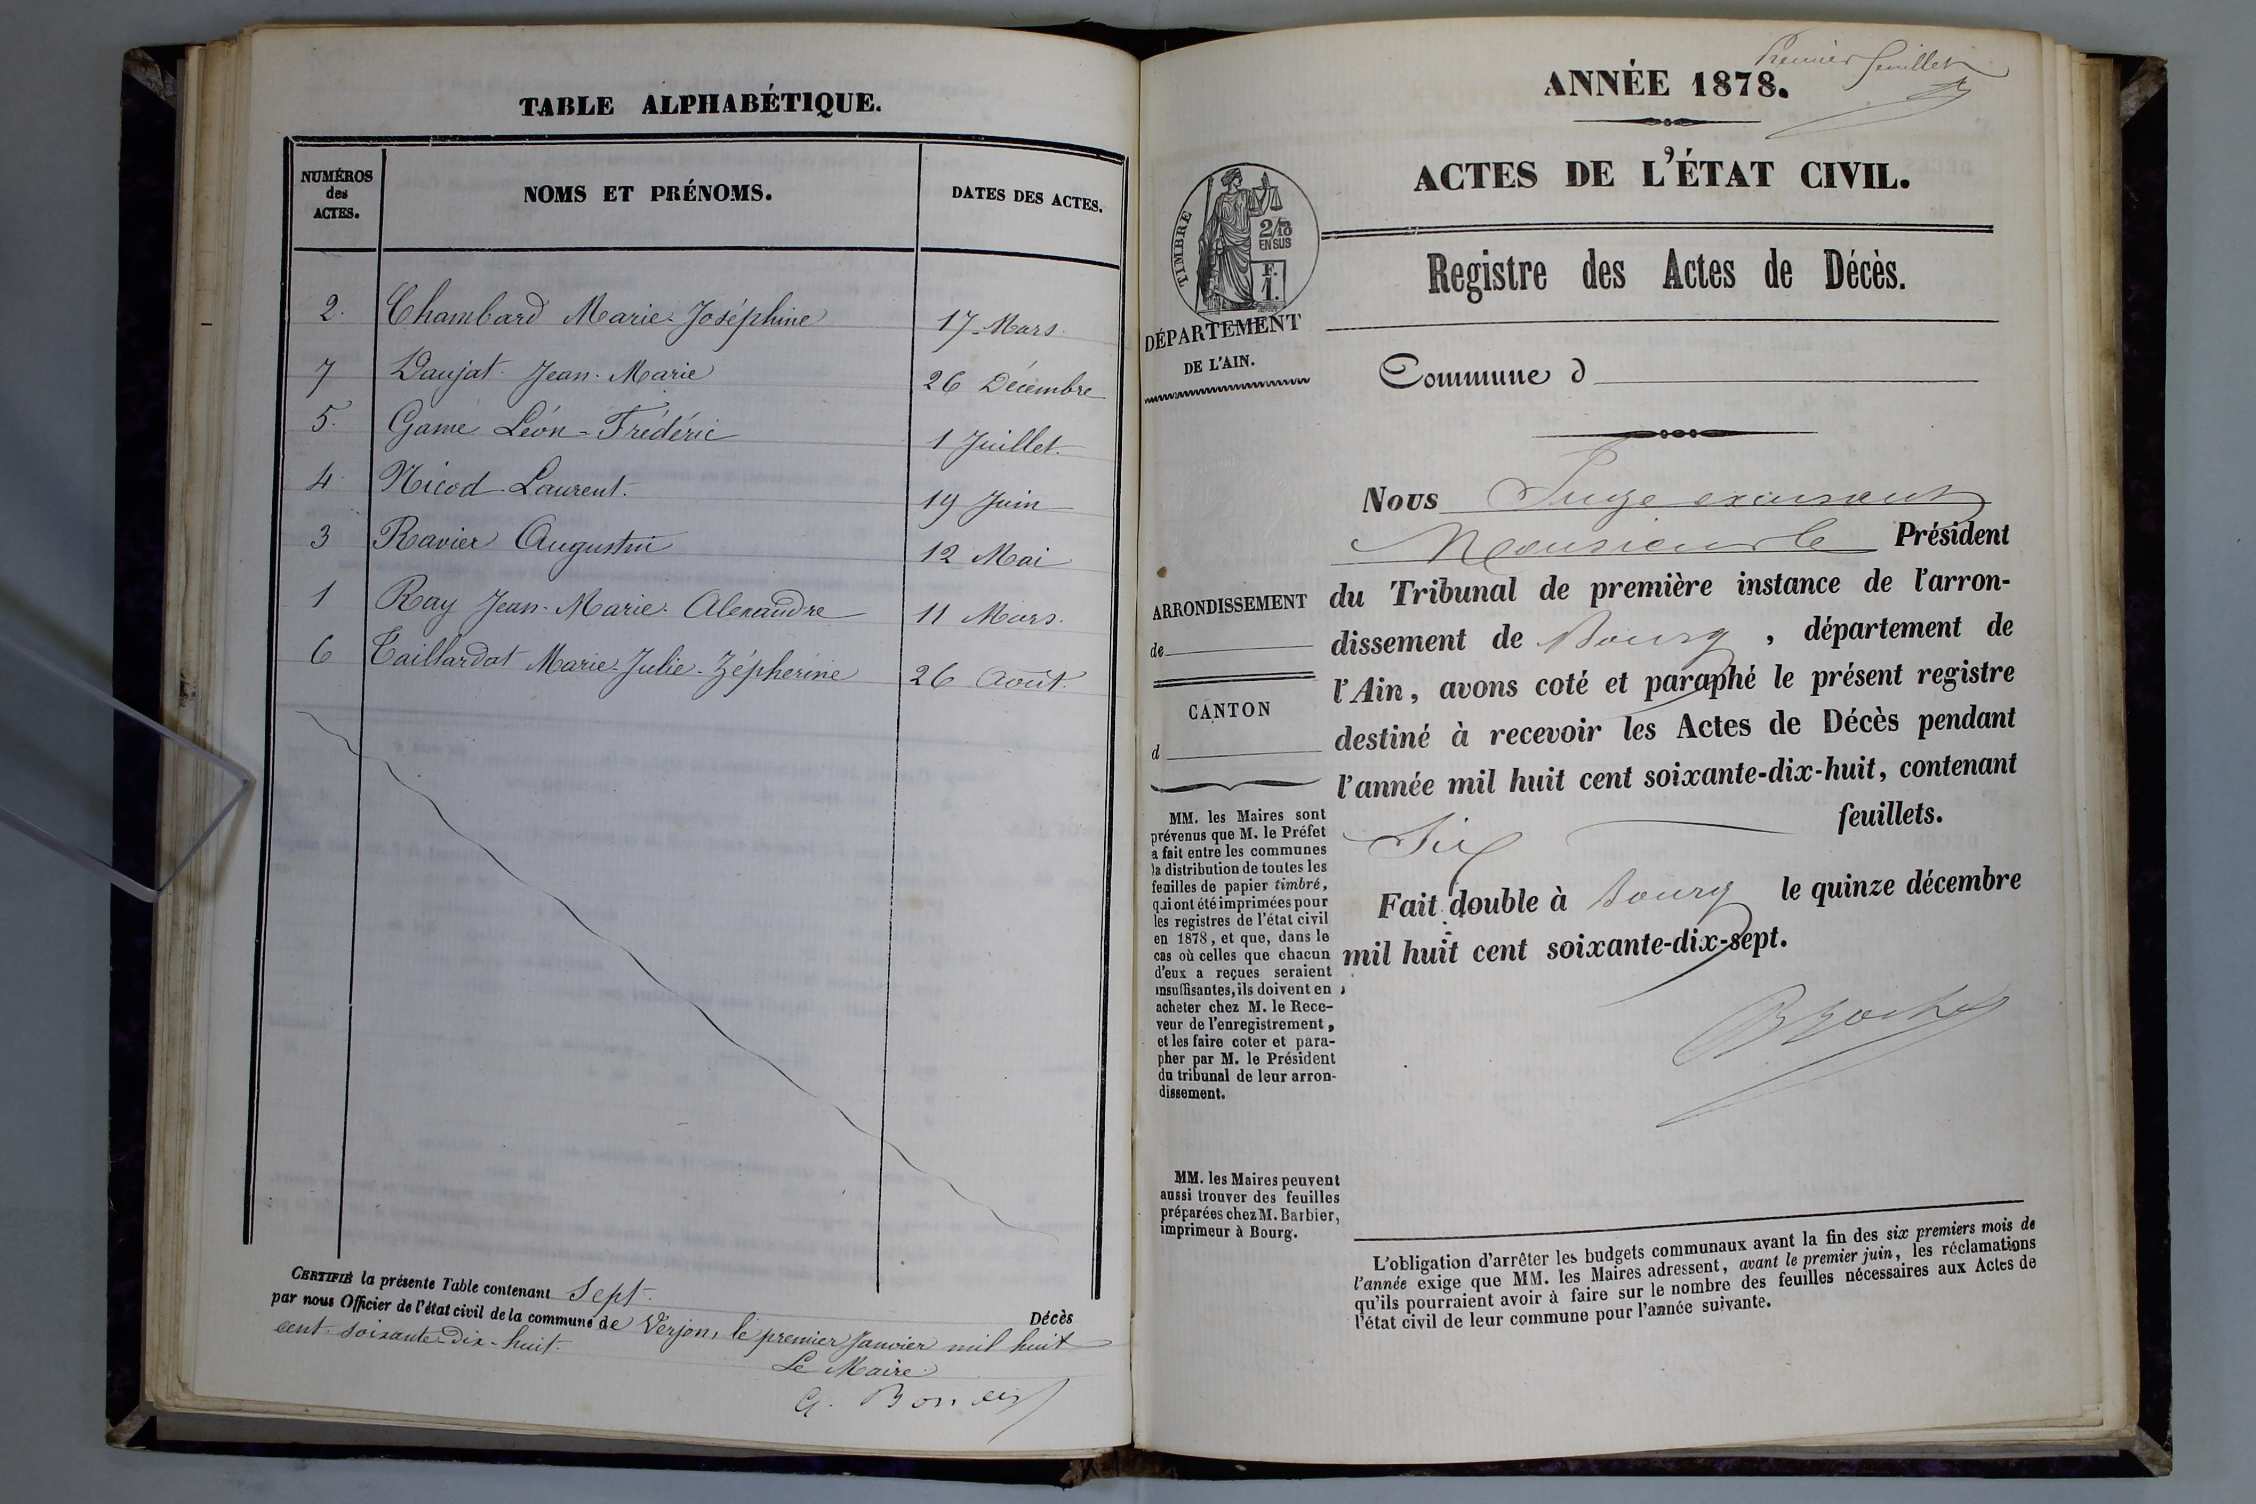 TABLE ALPHABÉTIQUE.
NUMÉROS des ACTES. NOMS ET PRÉNOMS. DATES DES ACTES.
2. Chambard Marie-Joséphine 17 Mars.
7 Daujat Jean-Marie 26 Décembre
5. Game Léon-Frédéric 1 Juillet.
4. Nicod Laurent. 19 Juin
3 Ravier Augustin 12 Mai
1 Ray Jean-Marie-Alexandre 11 Mars.
6 Taillardat Marie-Julie-Zépherine 26 Août.
CERTIFIÉ la présente Table contenant Sept. Décès
par nous Officier de l'état civil de la commune de Verjon, le premier Janvier mil huit
cent soixante-dix-huit.
Le Maire.
Premier feuillet
ANNÉE 1878.
ACTES DE L'ÉTAT CIVIL.
TIMBRE
2/10
EN SUS
F.
1.
Registre des Actes de Décès.
DÉPARTEMENT
DE L'AIN.
Commune d
Nous Juge
Monsieur le Président
du Tribunal de première instance de l'arron-
dissement de Bourg, département de
l'Ain, avons coté et paraphé le présent registre
destiné à recevoir les Actes de Décès pendant
l'année mil huit cent soixante-dix-huit, contenant
Six feuillets.
Fait double à Bourg le quinze décembre
mil huit cent soixante-dix-sept.
ARRONDISSEMENT
de
CANTON
d
MM. les Maires sont
prévenus que M. le Préfet
a fait entre les communes
la distribution de toutes les
feuilles de papier timbré,
qui ont été imprimées pour
les registres de l'état civil
en 1878, et que, dans le
cas où celles que chacun
d'eux a reçues seraient
insuffisantes, ils doivent en
acheter chez M. le Rece-
veur de l'enregistrement,
et les faire coter et para-
pher par M. le Président
du tribunal de leur arron-
dissement.
MM. les Maires peuvent
aussi trouver des feuilles
préparées chez M. Barbier,
imprimeur à Bourg.
L'obligation d'arrêter les budgets communaux avant la fin des six premiers mois de
l'année exige que MM. les Maires adressent, avant le premier juin, les réclamations
qu'ils pourraient avoir à faire sur le nombre des feuilles nécessaires aux Actes de
l'état civil de leur commune pour l'année suivante.